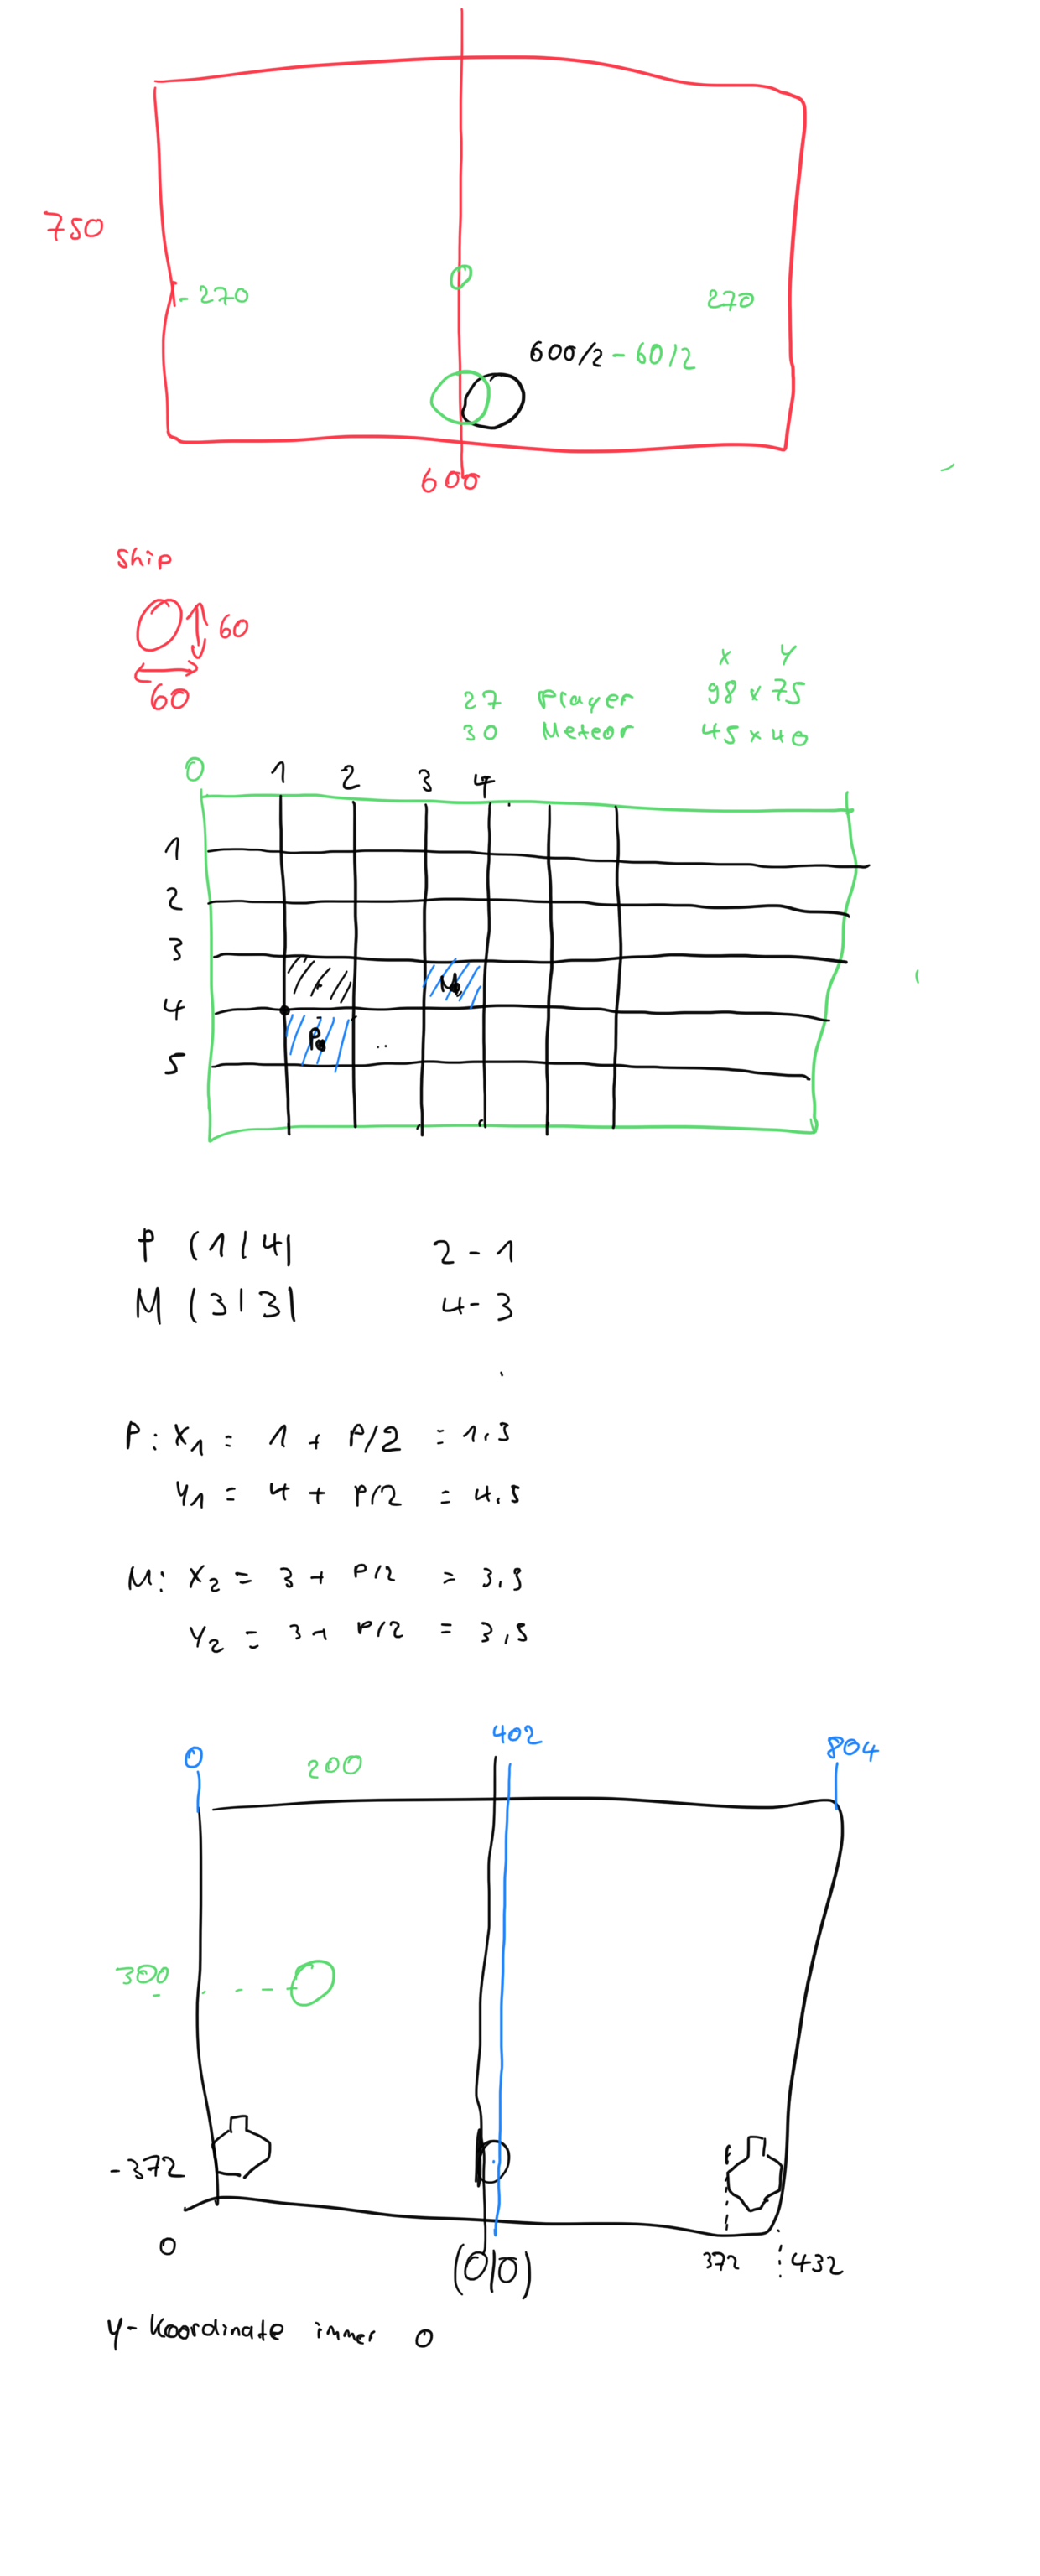 750
- 270
0
270
600/2 - 60/2
600
Ship
60
60
x y
27 Player 98 x 75
30 Meteor 45 x 40
0 1 2 3 4
1
2
3
M
4
P
5
P (1|4| 2 - 1
M (3|3| 4 - 3
P: X1 = 1 + P/2 = 1.5
Y1 = 4 + P/2 = 4.5
M: X2 = 3 + P/2 = 3.5
Y2 = 3 + P/2 = 3,5
0 200 402 804
300
-372
0 (0|0) 372 432
y-Koordinate immer 0